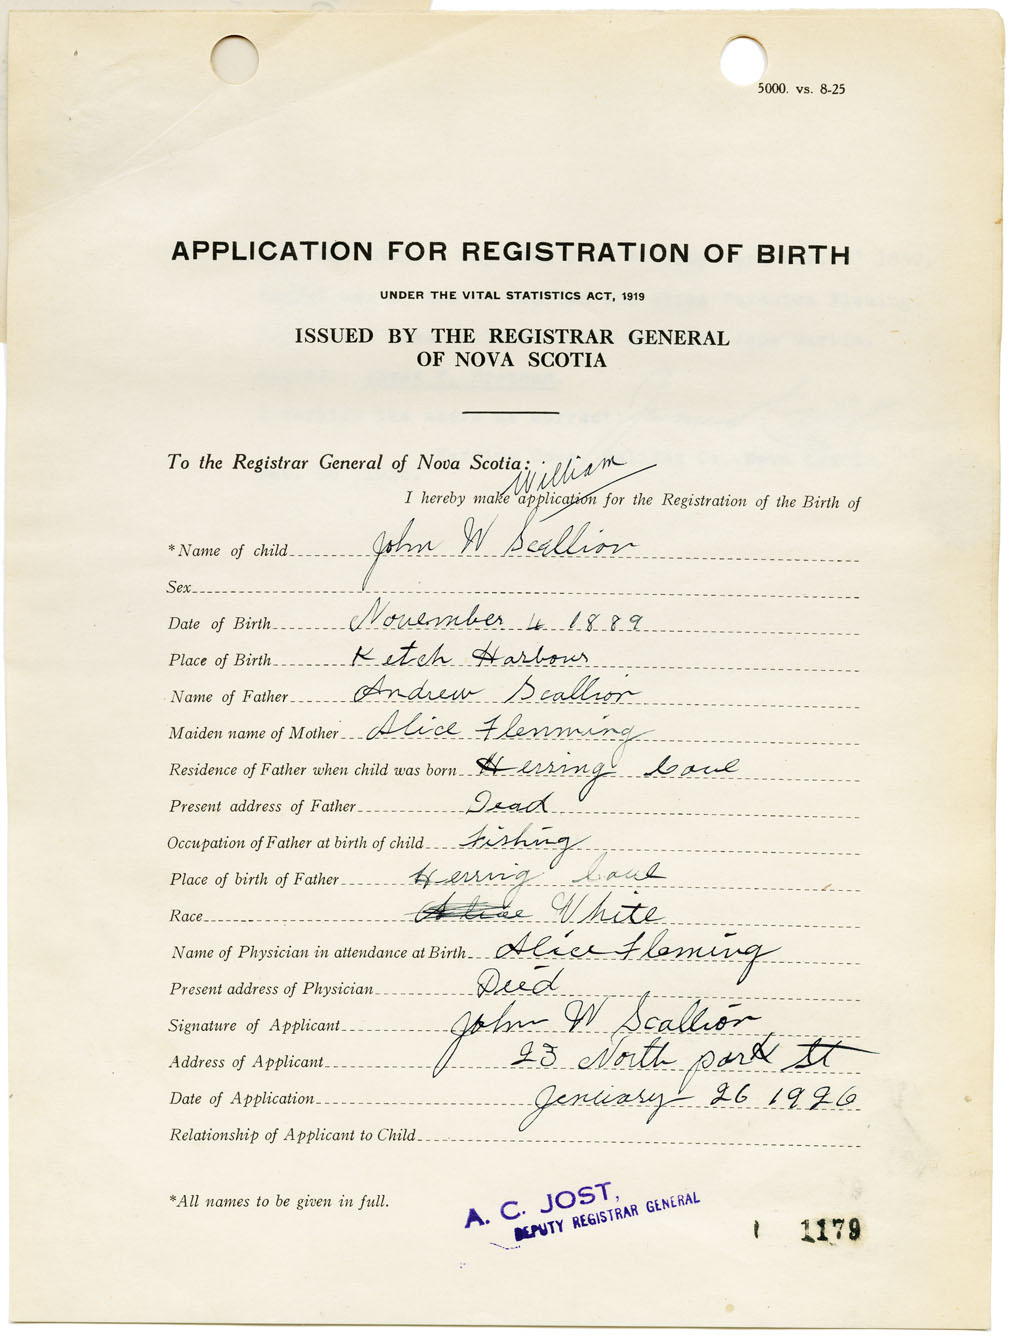 5000. vs. 8-25
APPLICATION FOR REGISTRATION OF BIRTH
UNDER THE VITAL STATISTICS ACT, 1919
ISSUED BY THE REGISTRAR GENERAL
OF NOVA SCOTIA
To the Registrar General of Nova Scotia:
William
I hereby make application for the Registration of the Birth of
*Name of child John W Scallion
Sex
Date of Birth November 4 1889
Place of Birth Ketch Harbour
Name of Father Andrew Scallion
Maiden name of Mother Alice Flemming
Residence of Father when child was born Herring Cove
Present address of Father Dead
Occupation of Father at birth of child Fishing
Place of birth of Father Herring Cove
Race White
Name of Physician in attendance at Birth Alice Fleming
Present address of Physician Deed
Signature of Applicant John W Scallion
Address of Applicant 23 North park St
Date of Application January 26 1926
Relationship of Applicant to Child
*All names to be given in full.
A. C. JOST,
DEPUTY REGISTRAR GENERAL
1179